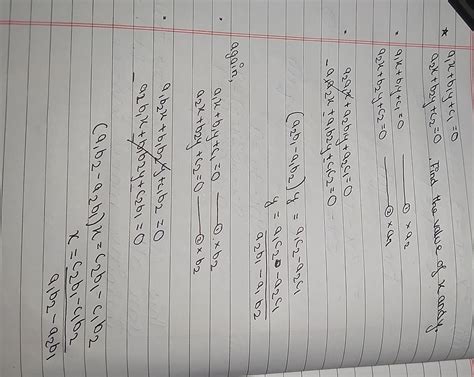 * a1x + b1y + c1 = 0
a2x + b2y + c2 = 0. Find the value of x and y.
• a1x + b1y + c1 = 0 —— ① × a2
a2x + b2y + c2 = 0 —— ② × a1
a2a1x + a2b1y + a2c1 = 0
- a1a2x + a1b2y + a1c2 = 0
(a2b1 - a1b2) y = a1c2 - a2c1
y = a1c2 - a2c1
a2b1 - a1b2
again,
• a1x + b1y + c1 = 0 —— ① × b2
a2x + b2y + c2 = 0 —— ② × b1
a1b2x + b1b2y + c1b2 = 0
- a2b1x + b1b2y + c2b1 = 0
(a1b2 - a2b1) x = c2b1 - c1b2
x = c2b1 - c1b2
a1b2 - a2b1